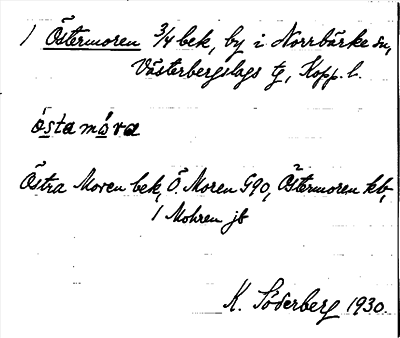 1 Östermoren 3/4 bek, by i Norrbärke sn,
Västerbergslags tg, Kopp. l.
östamóra
Östra Moren bek, Ö. Moren G90, Östermoren kb,
1 Mohren jb
K. Söderberg 1930.